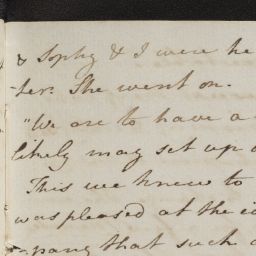 & Sophy & I were he
-ter. She went on.
"We are to have a
likely may set up a
This we knew to
was pleased at the
pang that such a